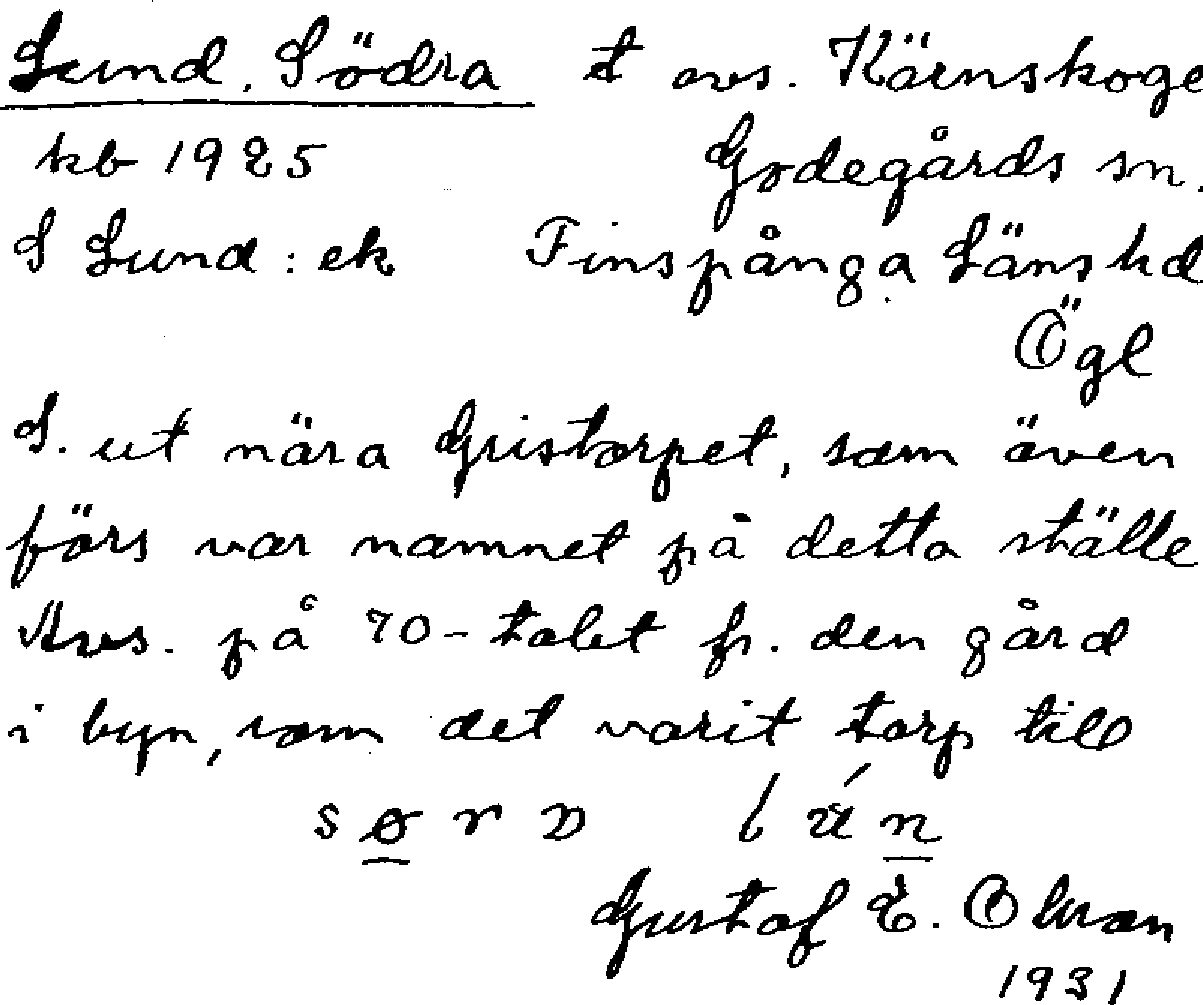 Lund, Södra t avs. Kärnskoge
kb 1925 Godegårds sn.
S Lund : ek Finspånga Läns hd
Ögl
S. ut nära Gristorpet, som även
förs var namnet på detta ställe
Avs. på 70-talet fr. den gård
i byn, som det varit torp till
Gustaf E.
1931